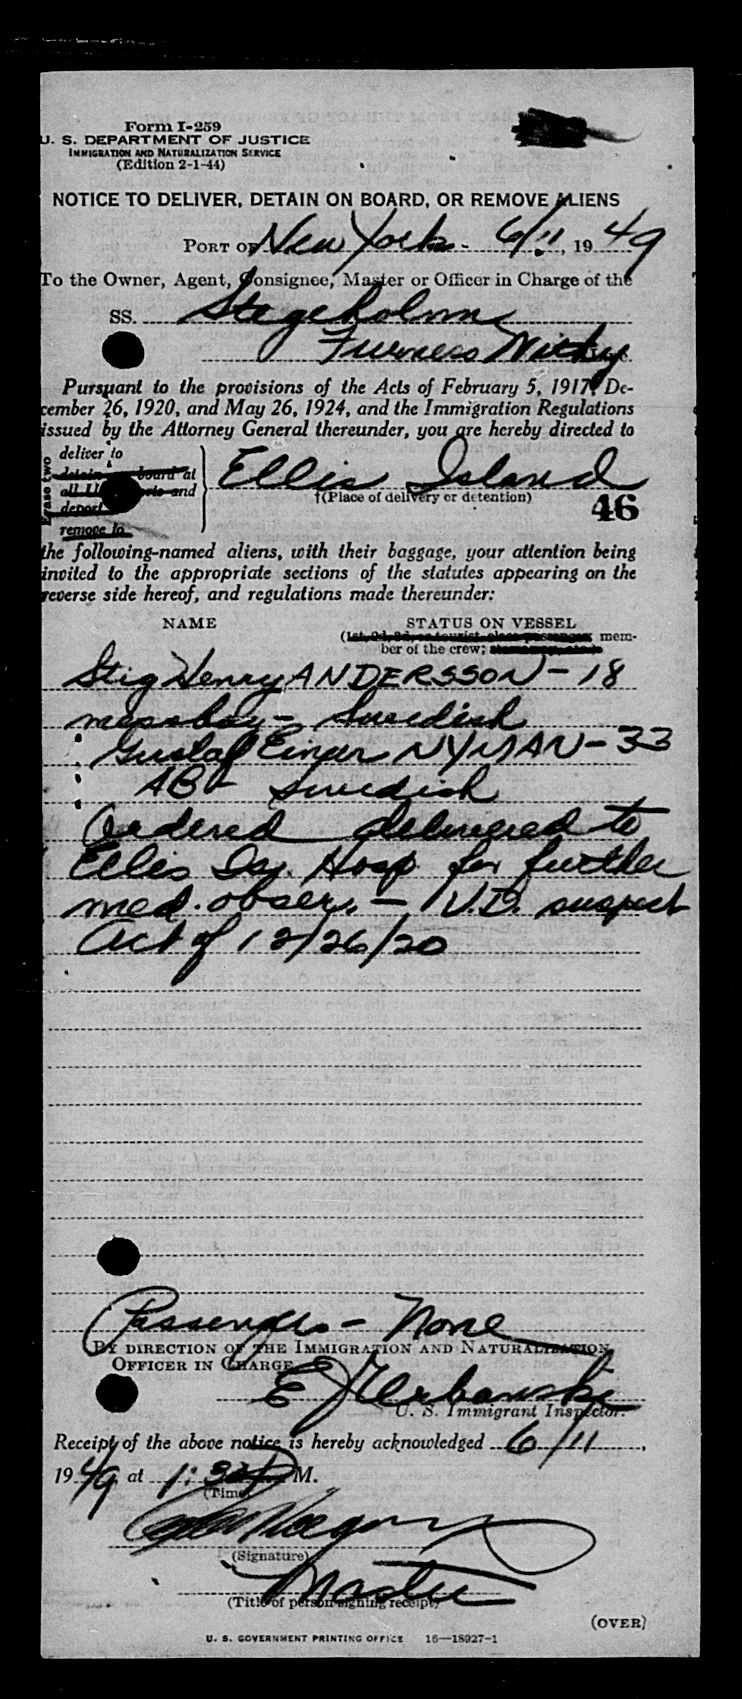 Form I-259
U. S. DEPARTMENT OF JUSTICE
IMMIGRATION AND NATURALIZATION SERVICE
(Edition 2-1-44)
NOTICE TO DELIVER, DETAIN ON BOARD, OR REMOVE ALIENS
PORT OF New York - 6/11, 1949
To the Owner, Agent, Consignee, Master or Officer in Charge of the
SS. Stegeholm
Furness Withy
Pursuant to the provisions of the Acts of February 5, 1917, De-
cember 26, 1920, and May 26, 1924, and the Immigration Regulations
issued by the Attorney General thereunder, you are hereby directed to
deliver to
detain board at
all and
deport
remove to
Erase two
Ellis Island
†(Place of delivery or detention)
46
the following-named aliens, with their baggage, your attention being
invited to the appropriate sections of the statutes appearing on the
reverse side hereof, and regulations made thereunder:
NAME STATUS ON VESSEL
(1st, 2d, 3d, or tourist class passenger, mem-
ber of the crew;
Stig Henry ANDERSSON - 18
messboy - Swedish
Gustaf Einar NYMAN - 33
AB - Swedish
Ordered delivered to
Ellis Is. Hosp for further
med. obser. - V.D. suspect
Act of 12/26/20
Passengers - None
BY DIRECTION OF THE IMMIGRATION AND NATURALIZATION
OFFICER IN CHARGE
E J Urbanski
U. S. Immigrant Inspector.
Receipt of the above notice is hereby acknowledged 6/11,
1949 at 1:30 P M.
(Time)
(Signature)
Master
(Title of person signing receipt)
(OVER)
U. S. GOVERNMENT PRINTING OFFICE 16—18927-1